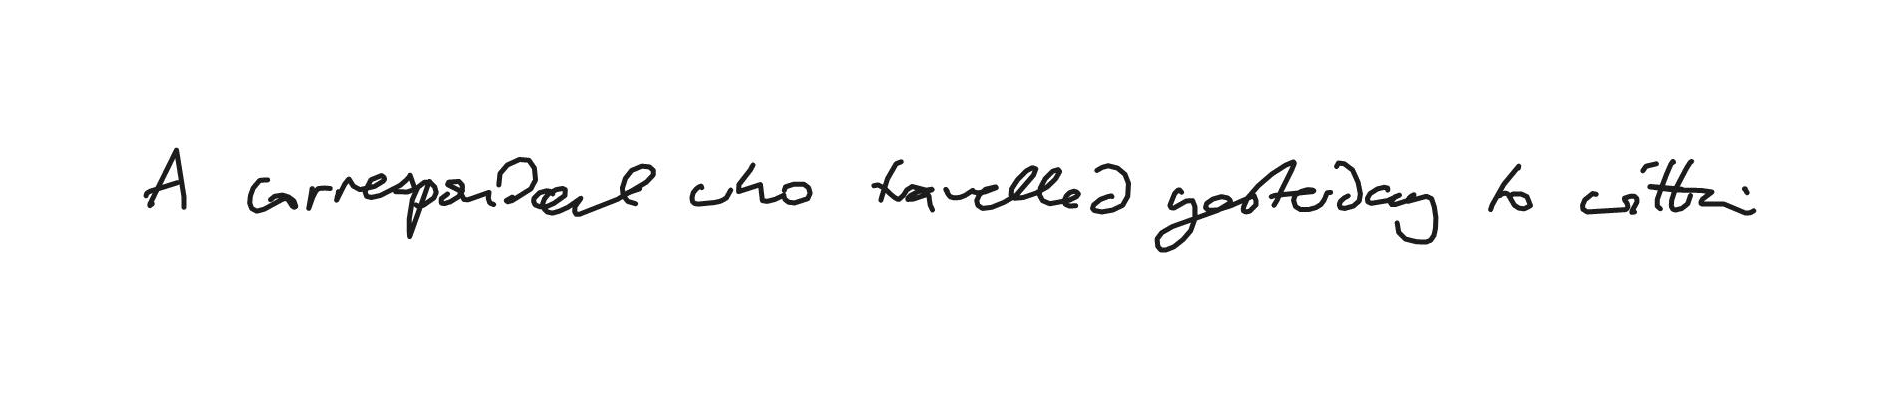 A correspondent who travelled yesterday to within